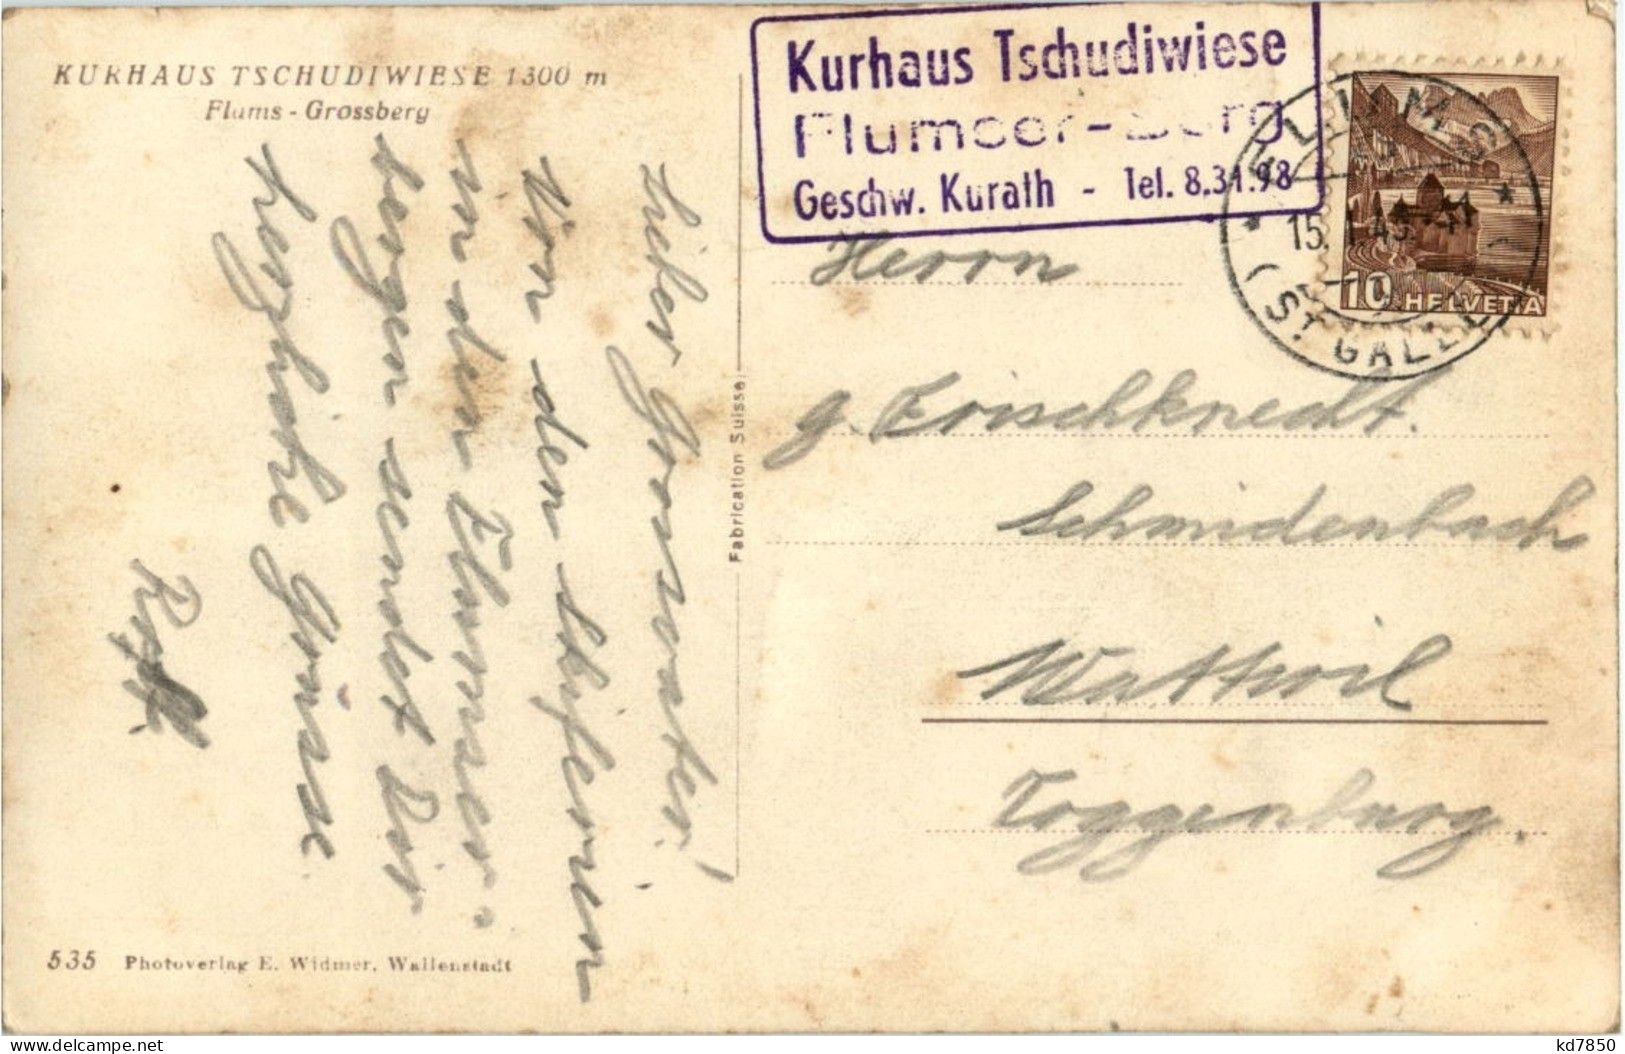 KURHAUS TSCHUDIWIESE 1300 m
Flums - Grossberg
Lieber Grossvater!
Von den den Skiferien
in den Flumser-
bergen sendet Dir
herzliche Grüsse
535 Photoverlag E. Widmer, Wallenstadt
Fabrication Suisse
Kurhaus Tschudiwiese
Flumser-Berg
Geschw. Kurath - Tel. 8.31.98
FLUMS
15. 1. 43.
(ST. GALLEN)
10 HELVETIA
Herrn
G. Frischknecht.
Schmidenbach
Wattwil
Toggenburg.
kd7850